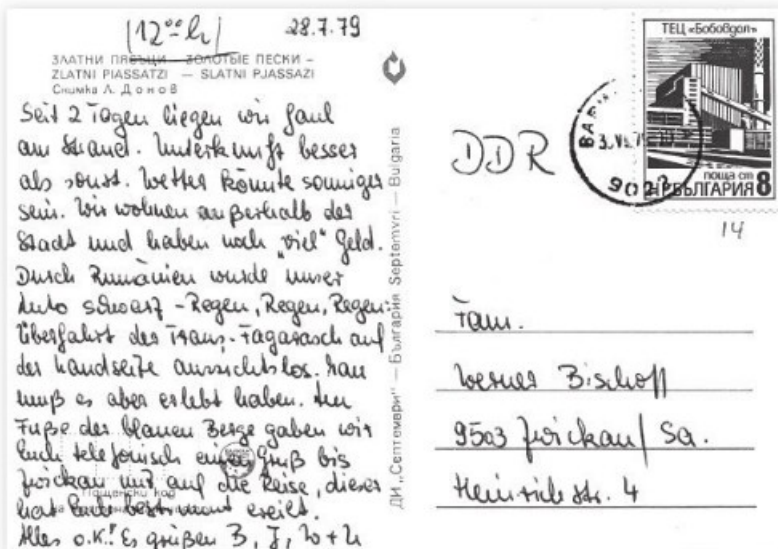 (12⁰⁰ h)
28.7.79
ЗЛАТНИ ПЯСЪЦИ – ЗОЛОТЫЕ ПЕСКИ –
ZLATNI PIASSATZI – SLATNI PJASSAZI
Снимка Л. Донов
Seit 2 Tagen liegen wir faul
am Strand. Unterkunft besser
als sonst. Wetter könnte sonniger
sein. Wir wohnen außerhalb der
Stadt und haben noch "viel" Geld.
Durch Rumänien wurde unser
Auto schwarz - Regen, Regen, Regen.
Überfahrt der Trans-Fagarasch auf
der Landseite aussichtslos. Man
muß es aber erlebt haben. Am
Fuße der blauen Berge gaben wir
Euch telefonisch einen Gruß bis
Zwickau mit auf die Reise, dieser
hat Euch bestimmt ereilt.
Alles o.K.! Es grüßen B, J,
Пощенски код
ДИ „Септември" — България Septemvri — Bulgaria
DDR
ТЕЦ «Бобовдол»
поща ст
НРБЪЛГАРИЯ 8
9022
14
Fam.
Werner Bischoff
9503 Zwickau / Sa.
Heinrichstr. 4